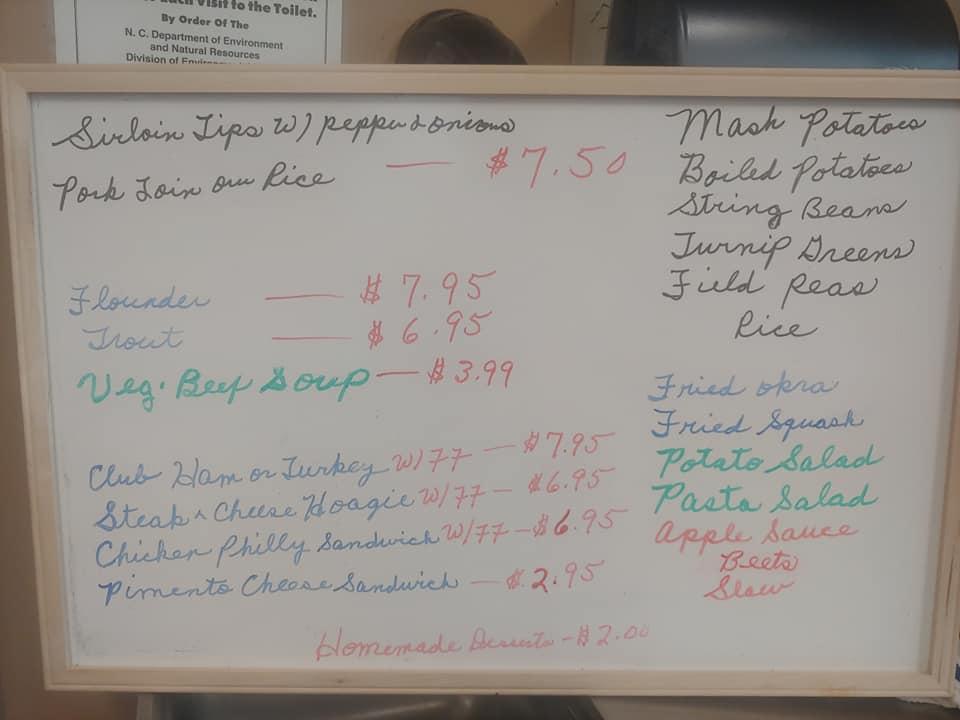 each Visit to the Toilet.
By Order Of The
N. C. Department of Environment
and Natural Resources
Division of
Sirloin Tips w/ pepper & onions
Pork Loin ouu Rice — $7.50
Flounder — $7.95
Trout — $6.95
Veg. Beef Soup — $3.99
Club Ham or Turkey w/ FF — $7.95
Steak ^ Cheese Hoagie w/ FF — $6.95
Chicken Philly Sandwich w/ FF — $6.95
Pimento Cheese Sandwich — $2.95
Homemade Desserts - $2.00
Mash Potatoes
Boiled Potatoes
String Beans
Turnip Greens
Field Peas
Rice
Fried okra
Fried Squash
Potato Salad
Pasta Salad
Apple Sauce
Beets
Slaw